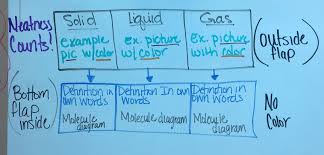 Neatness
Counts!
Solid
Liquid
Gas
example
pic w/color
ex. picture
w/color
ex. picture
with color
(Outside
flap)
(Bottom
flap
inside)
Definition in
own words
Molecule
diagram
Definition In own
Words
Molecule diagram
Definition in
own Words
Molecule
diagram
No
Color